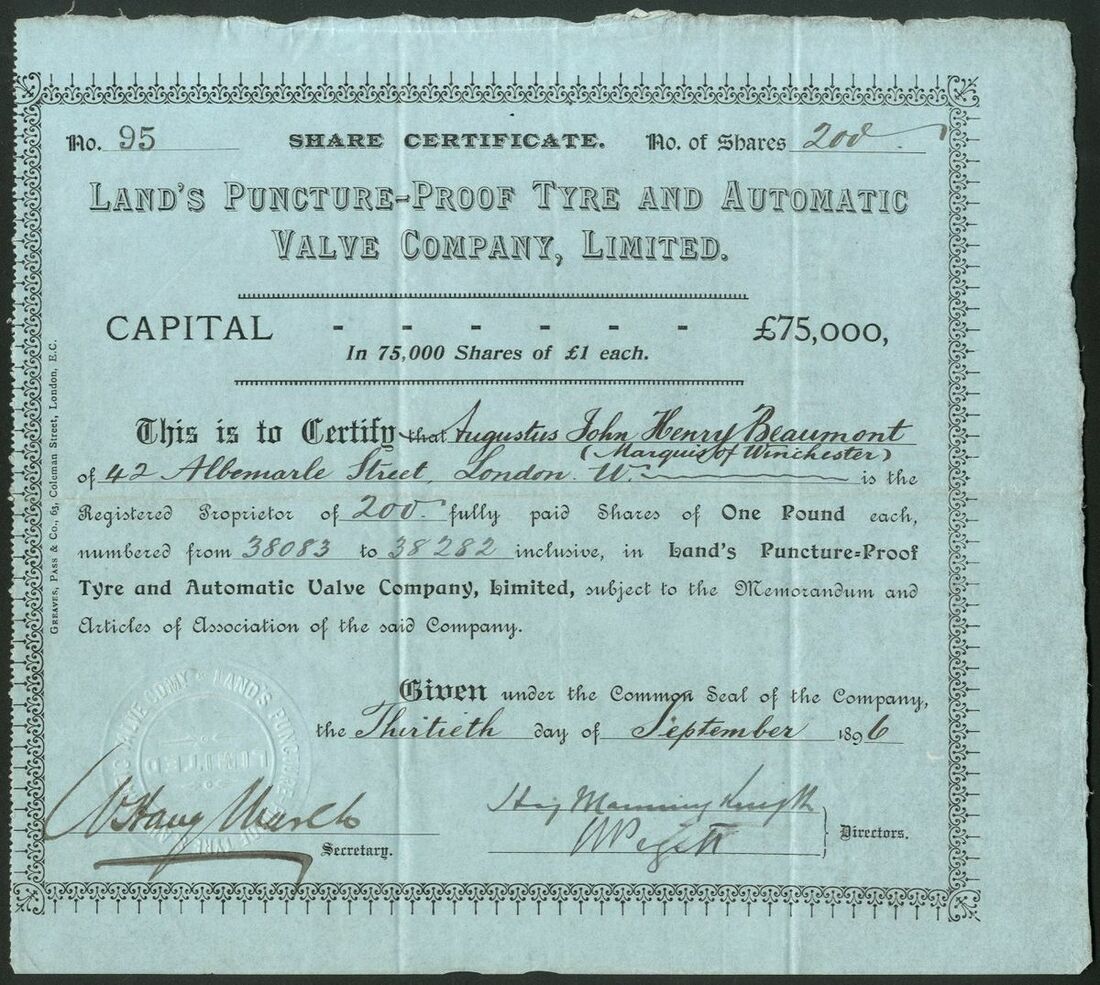 No. 95 SHARE CERTIFICATE. No. of Shares 200
LAND'S PUNCTURE-PROOF TYRE AND AUTOMATIC
VALVE COMPANY, LIMITED.
CAPITAL - - - - - - £75,000,
In 75,000 Shares of £1 each.
This is to Certify that Augustus John Henry Beaumont
(Marquis of Winchester)
of 42 Albemarle Street, London. W. is the
Registered Proprietor of 200 fully paid Shares of One Pound each,
numbered from 38083 to 38282 inclusive, in Land's Puncture-Proof
Tyre and Automatic Valve Company, Limited, subject to the Memorandum and
Articles of Association of the said Company.
Given under the Common Seal of the Company,
the Thirtieth day of September 1896
Manning Knight
Directors.
Secretary.
GREAVES, PASS & CO., 63, Coleman Street, London, E.C.
LAND'S PUNCTURE
LIMITED